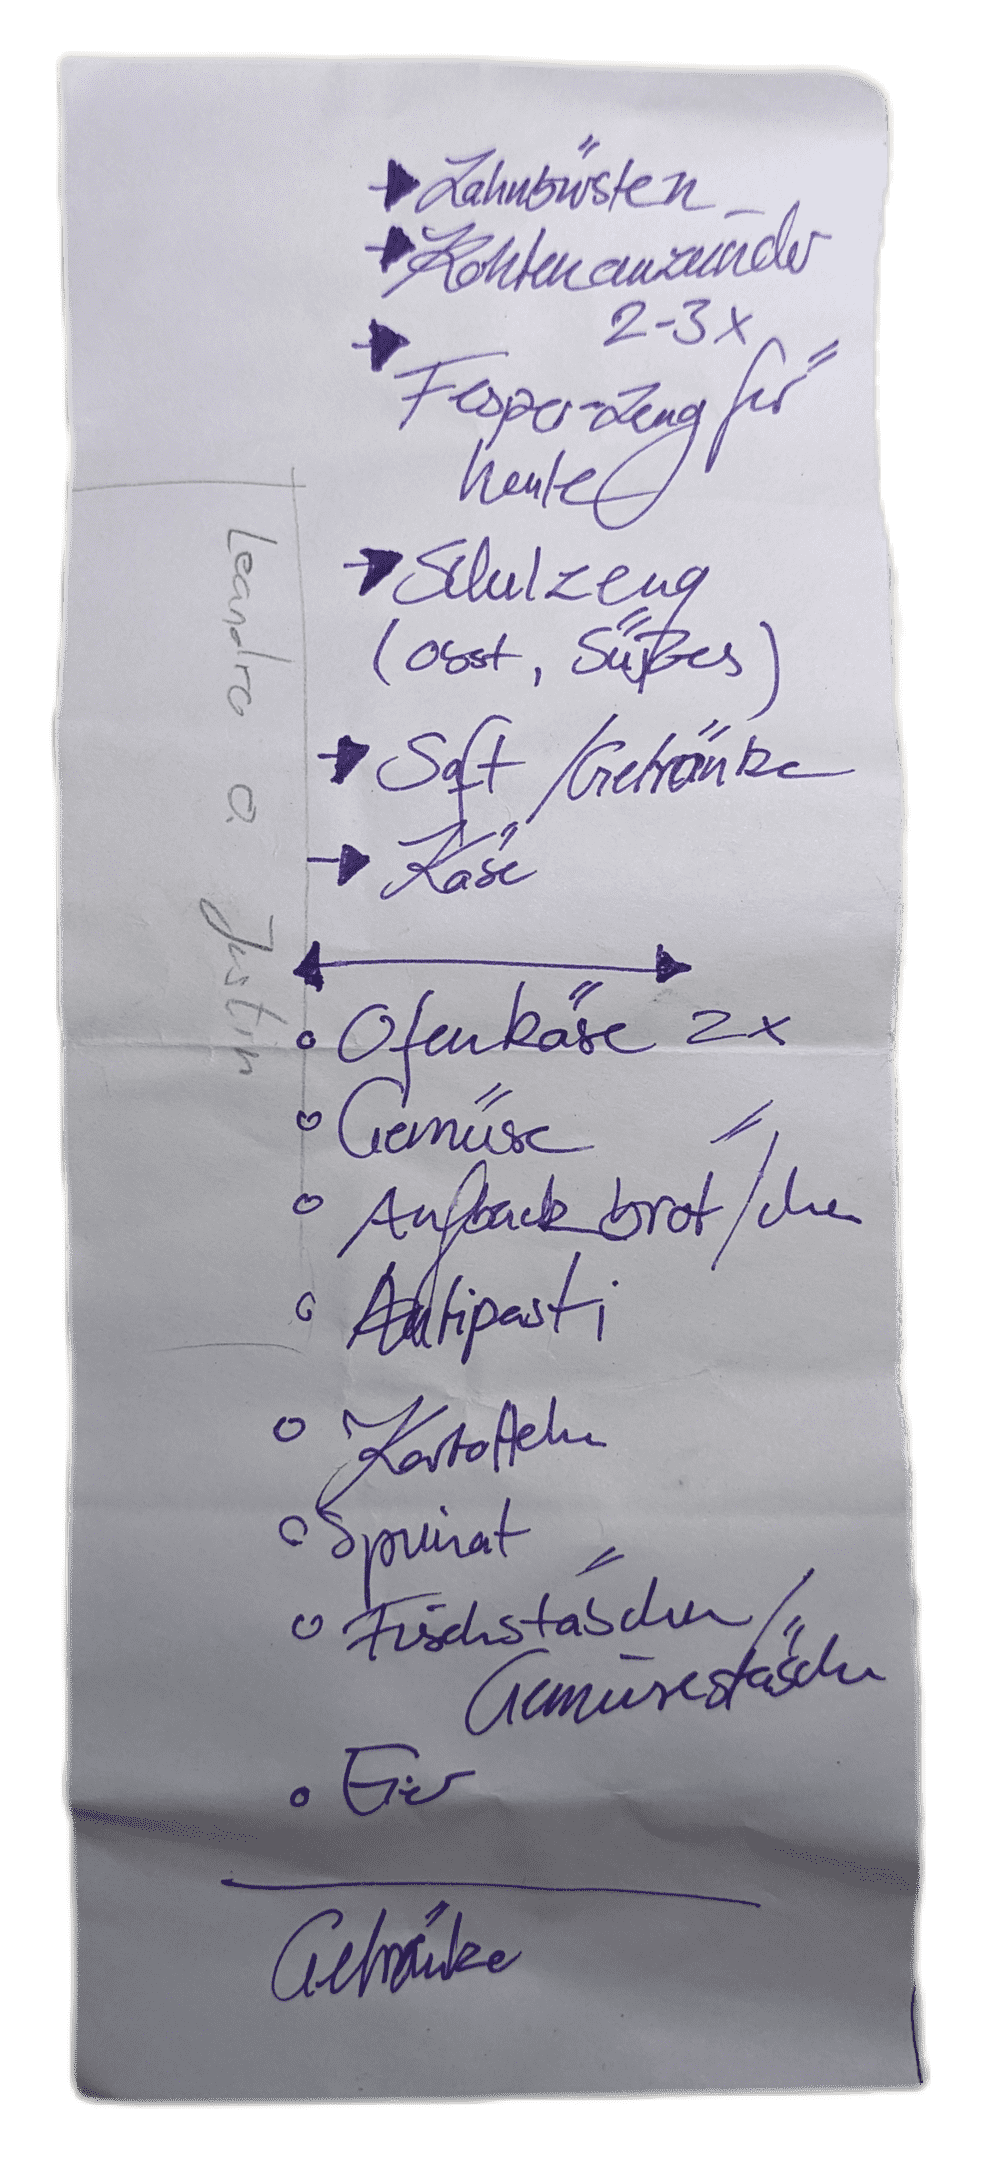 → Zahnbürsten
→ Kohlenanzünder
2-3 x
→
Fesper-Zeug für
heute
→ Schulzeug
(Obst, Süßes)
→ Saft / Getränke
→ Käse
Ofenkäse 2x
Gemüse
Aufback brot/chen
Antipasti
Kartoffeln
Spinat
Fischstäbchen /
Gemüsestäbchen
Eier
Getränke
Leandro a Justin